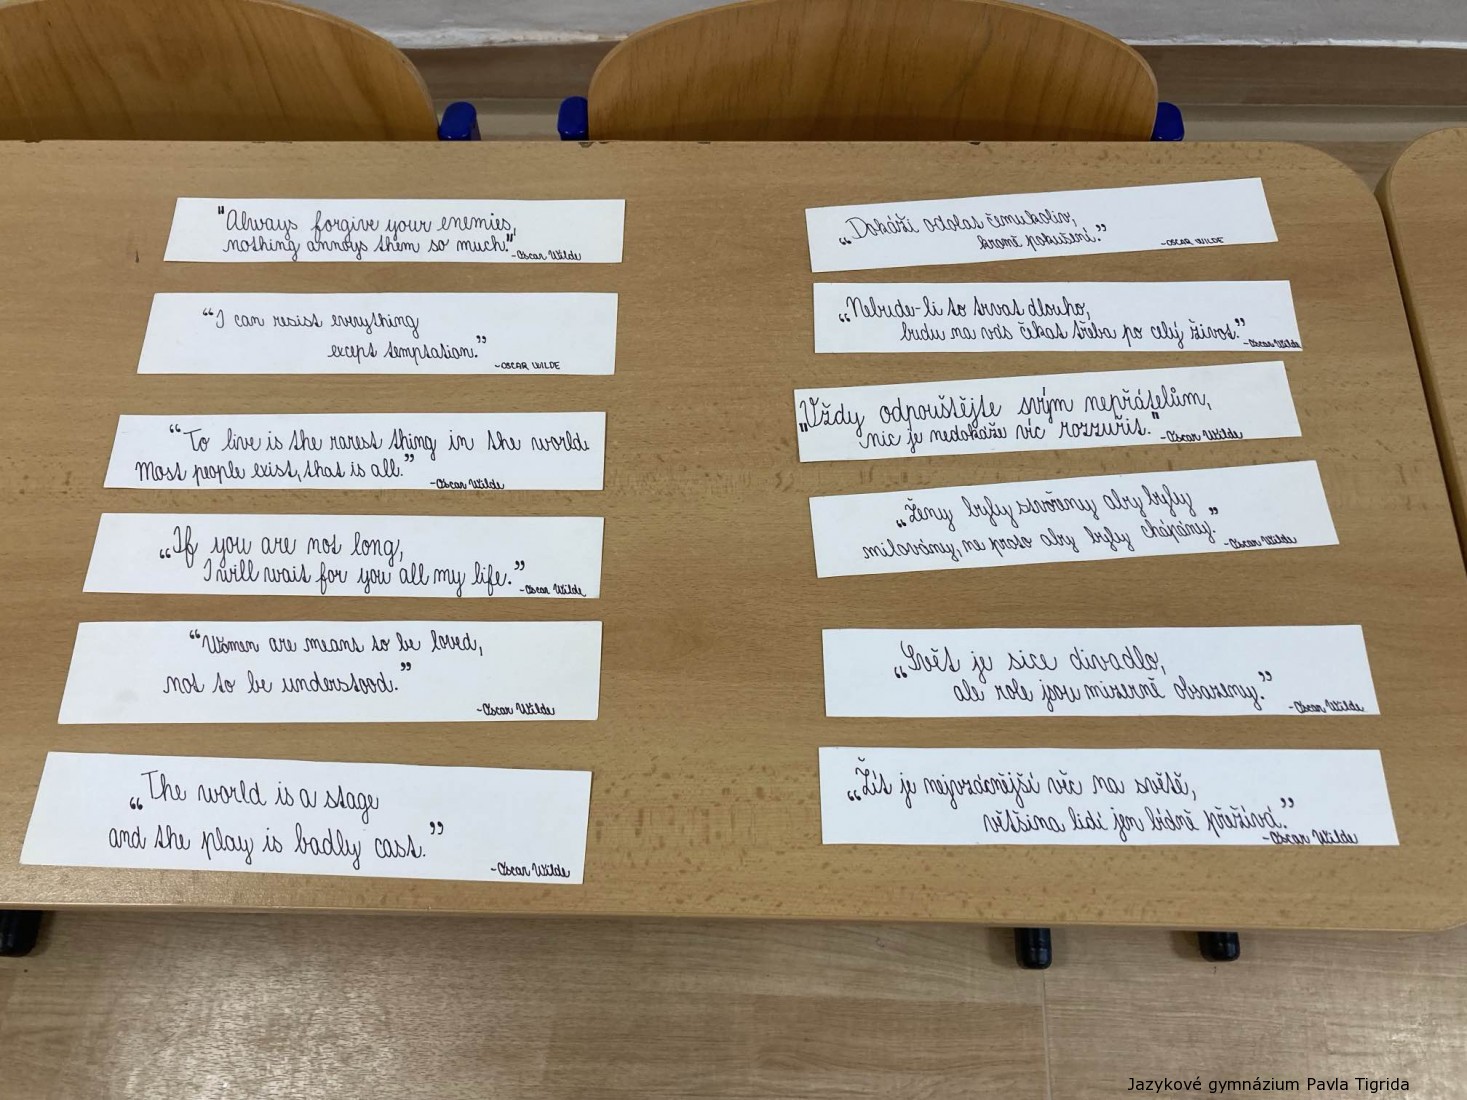 "Always forgive your enemies,
nothing annoys them so much."
-Oscar Wilde
“I can resist everything
except temptation.”
-OSCAR WILDE
“To live is the rarest thing in the world.
Most people exist, that is all.”
-Oscar Wilde
“If you are not long,
I will wait for you all my life.”
-Oscar Wilde
“Women are means to be loved,
not to be understood.”
-Oscar Wilde
“The world is a stage
and the play is badly cast.”
-Oscar Wilde
„Dokáži odolat čemukoliv,
kromě pokušení.”
-OSCAR WILDE
„Nebude-li to trvat dlouho,
budu na vás čekat třeba po celý život.”
-Oscar Wilde
"Vždy odpouštějte svým nepřátelům,
nic je nedokáže víc rozzuřit."
-Oscar Wilde
„Ženy byly stvořeny aby byly
milovány, ne proto aby byly chápány.”
-Oscar Wilde
„Svět je sice divadlo,
ale role jsou mizerně obsazeny.”
-Oscar Wilde
„Žít je nejvzácnější věc na světě,
většina lidí jen bídně přežívá.”
-Oscar Wilde
Jazykové gymnázium Pavla Tigrida